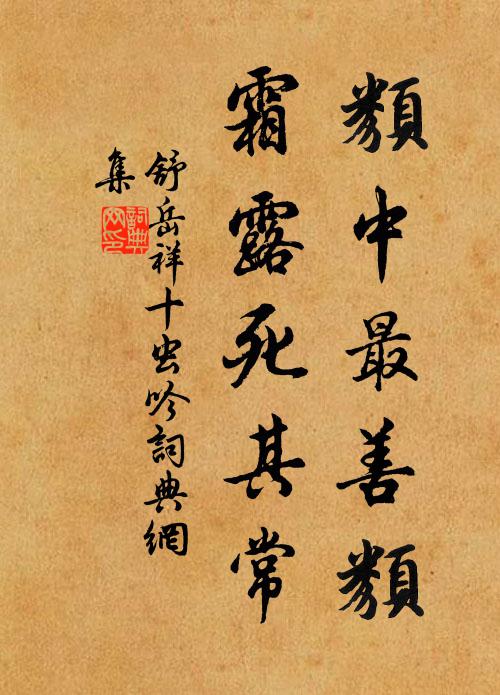 類中最善類
霜露死其常
舒岳祥十虫吟詞典網
集
詞典網印